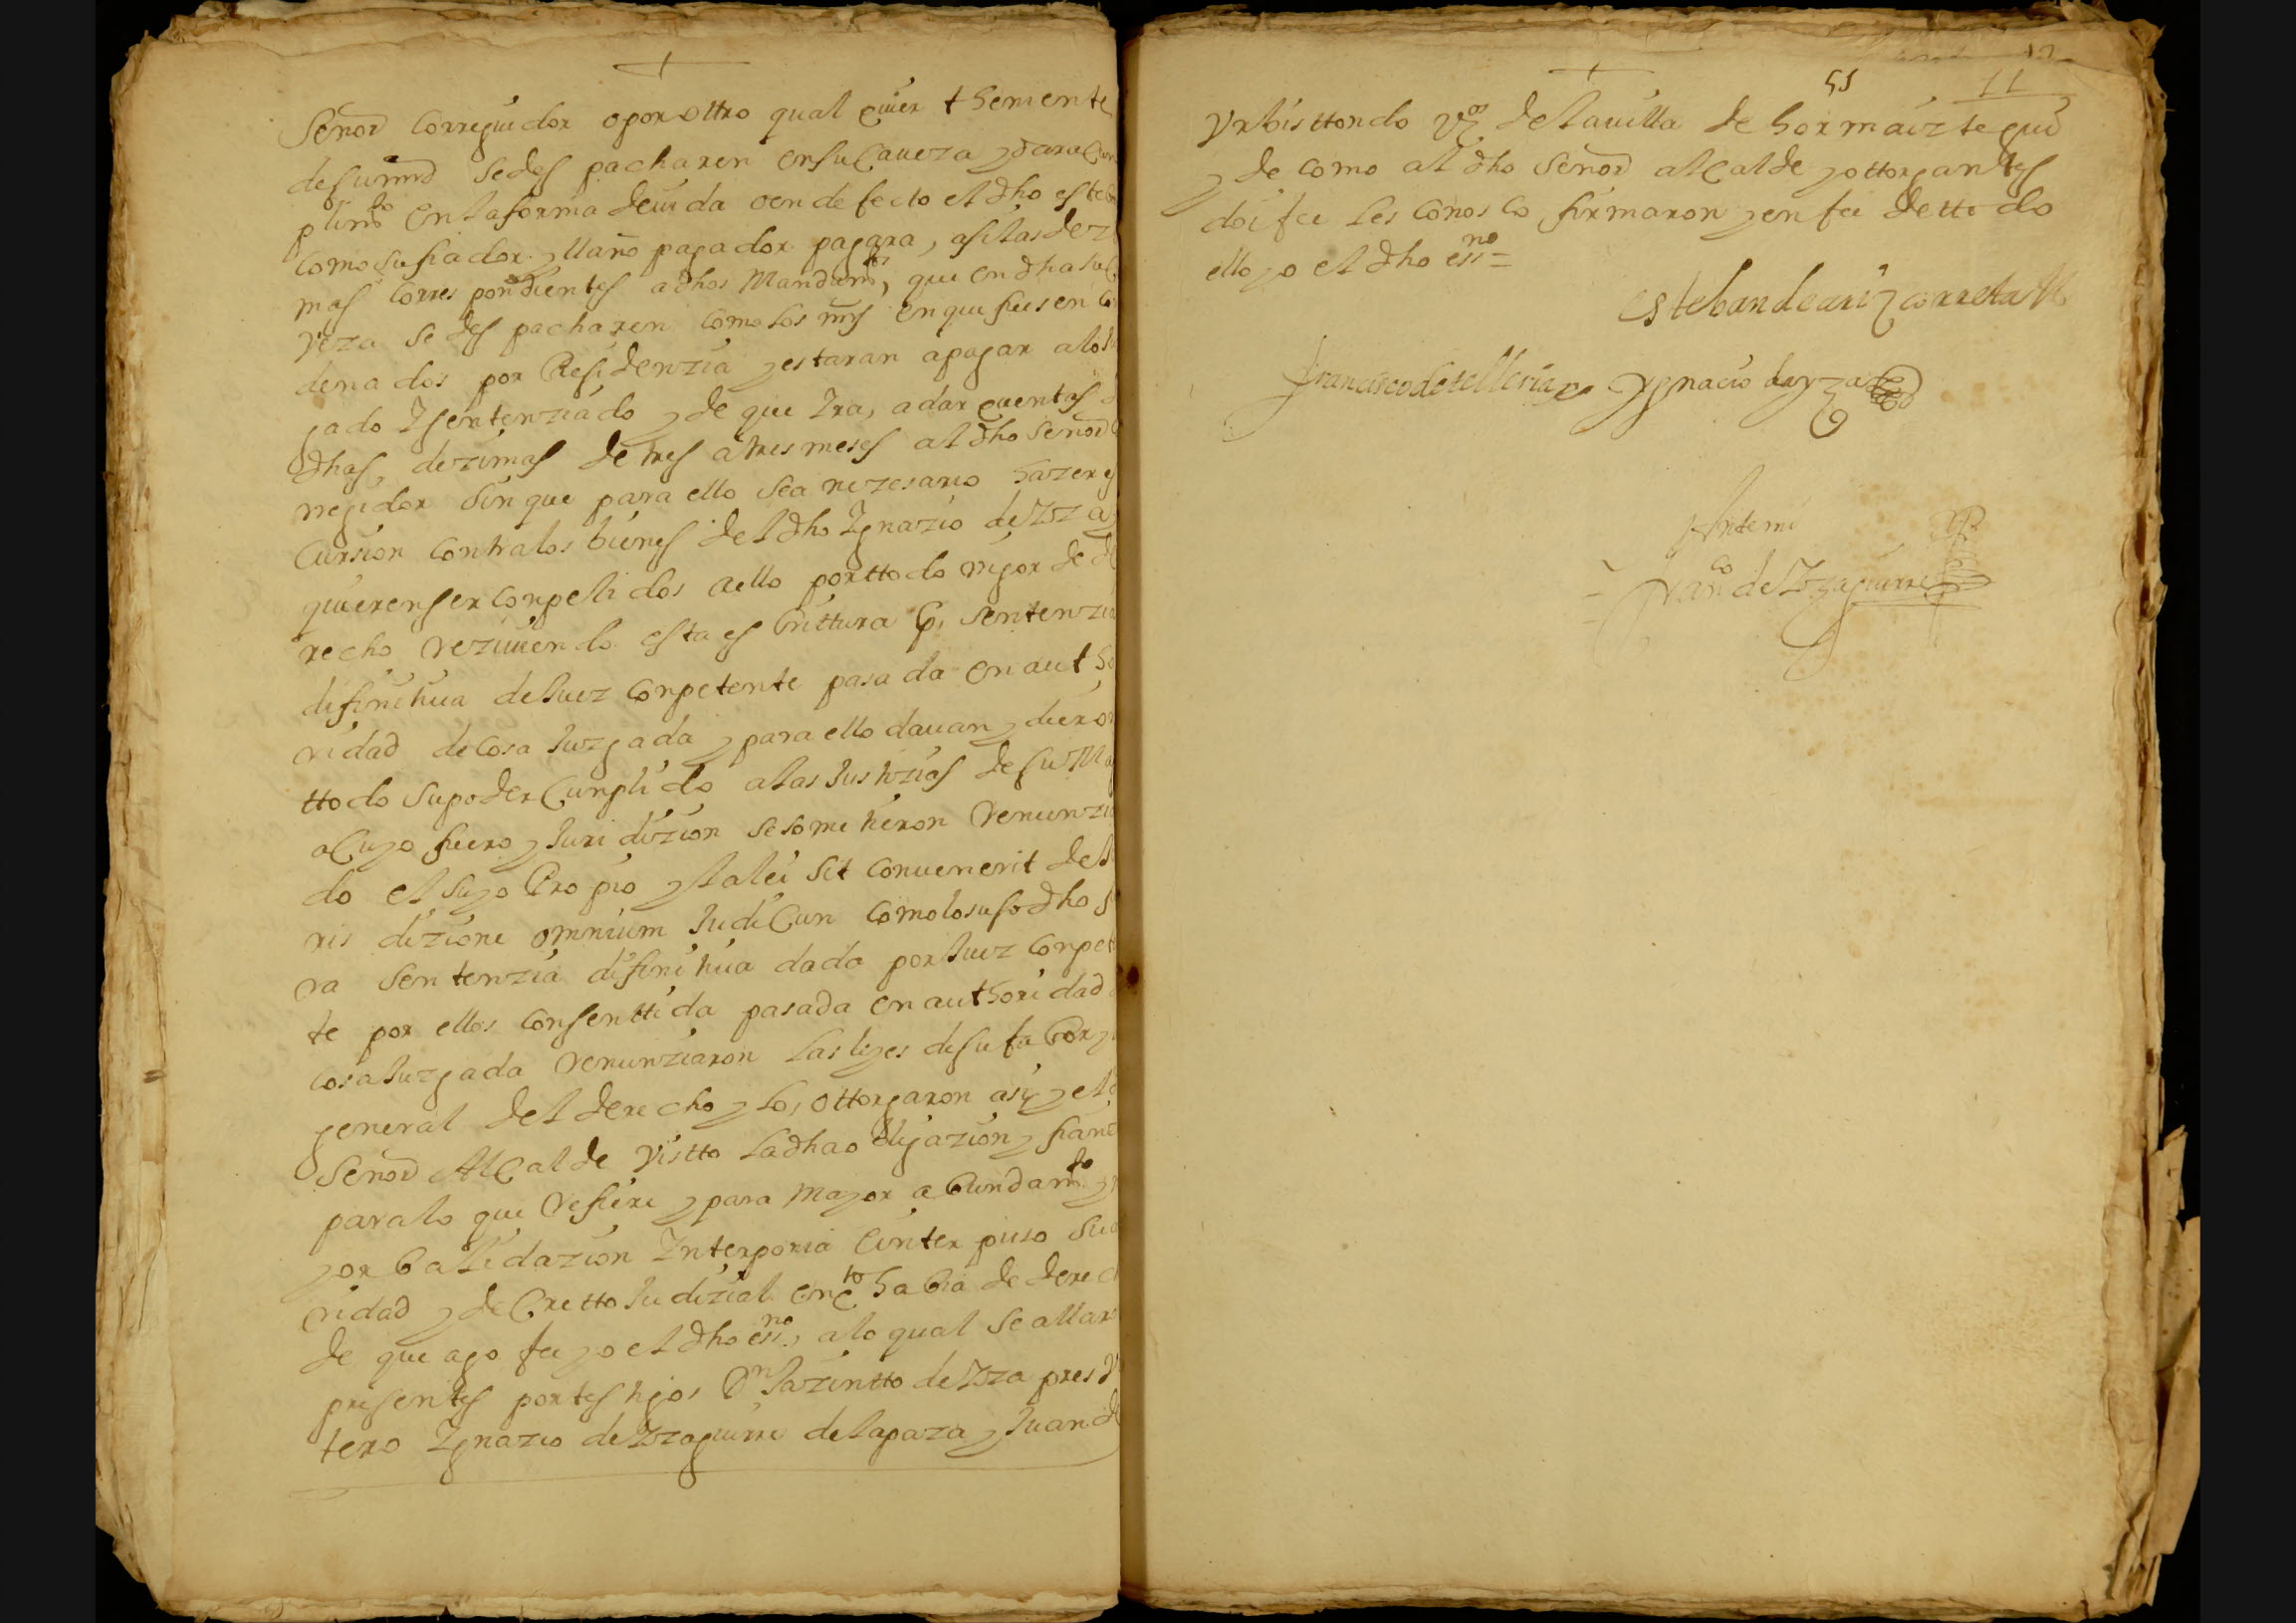 Señor corregidor o por ottro qual quier theniente
de su md se des pacharen en su Caueza y dara Cun
plimto en la forma deuida o en defecto el dho esteban
como su fiador y llano pagador pagara, asi las dezi
mas correspondientes a dhos Mandamtos, que en dha su Ca
veza se des pacharen como los mrs en que fuesen Con
denados por Residenzia y estaran a pagar a lo
gado y sentenziado y de que Ira, a dar quentas
dhas, dezimas de tres a tres meses al dho señor
regidor sin que para ello sea nezesario hazer es
Cursion contra los bienes del dho Ignazio de Yza y
quieren ser conpelidos a ello por ttodo rigor de de
recho reziuiendo esta es Crittura por sentenzia
difinitiua de Juez conpetente pasada en autho
ridad de Cosa Juzgada y para ello dauan y dieron
ttodo su poder Cunplido a las Justizias de su Mag
a Cuyo fuero y Juridizion se sometieron renunzian
do el suyo Propio y la lei sit conuenerit de Ju
ris dizione omnium Judicun como lo suso dho fue
ra sentenzia difinitiua dada por Juez conpeten
te por ellos consenttida pasada en authoridad
cosa Juzgada renunziaron las leyes de su fabor y
general del derecho y los ottorgaron asi y el
Señor Alcalde Vistto la dha obligazion y fianza
para lo que refiere y para mayor abundamto y
yor balidazion Interponia e inter puso su
ridad y de Cretto Judizial en qto habia de derecho
de que ago fee yo el dho essno, a lo qual se allaron
presentes por testigos Dn Jazintto de Yza pres Vi
tero Ignazio de Yzaguirre de la paza y Juan de
55 11
Vrbisttondo vzo de la uilla de hormaiztegui
y de como al dho Señor alcalde y ottorgantes
doi fee les conosco firmaron y en fee de ttodo
ello yo el dho essno =
esteban de arizcorreta
francisco de telleria Ygnacio de yza
Ante mi
Franco de Yzaguirre